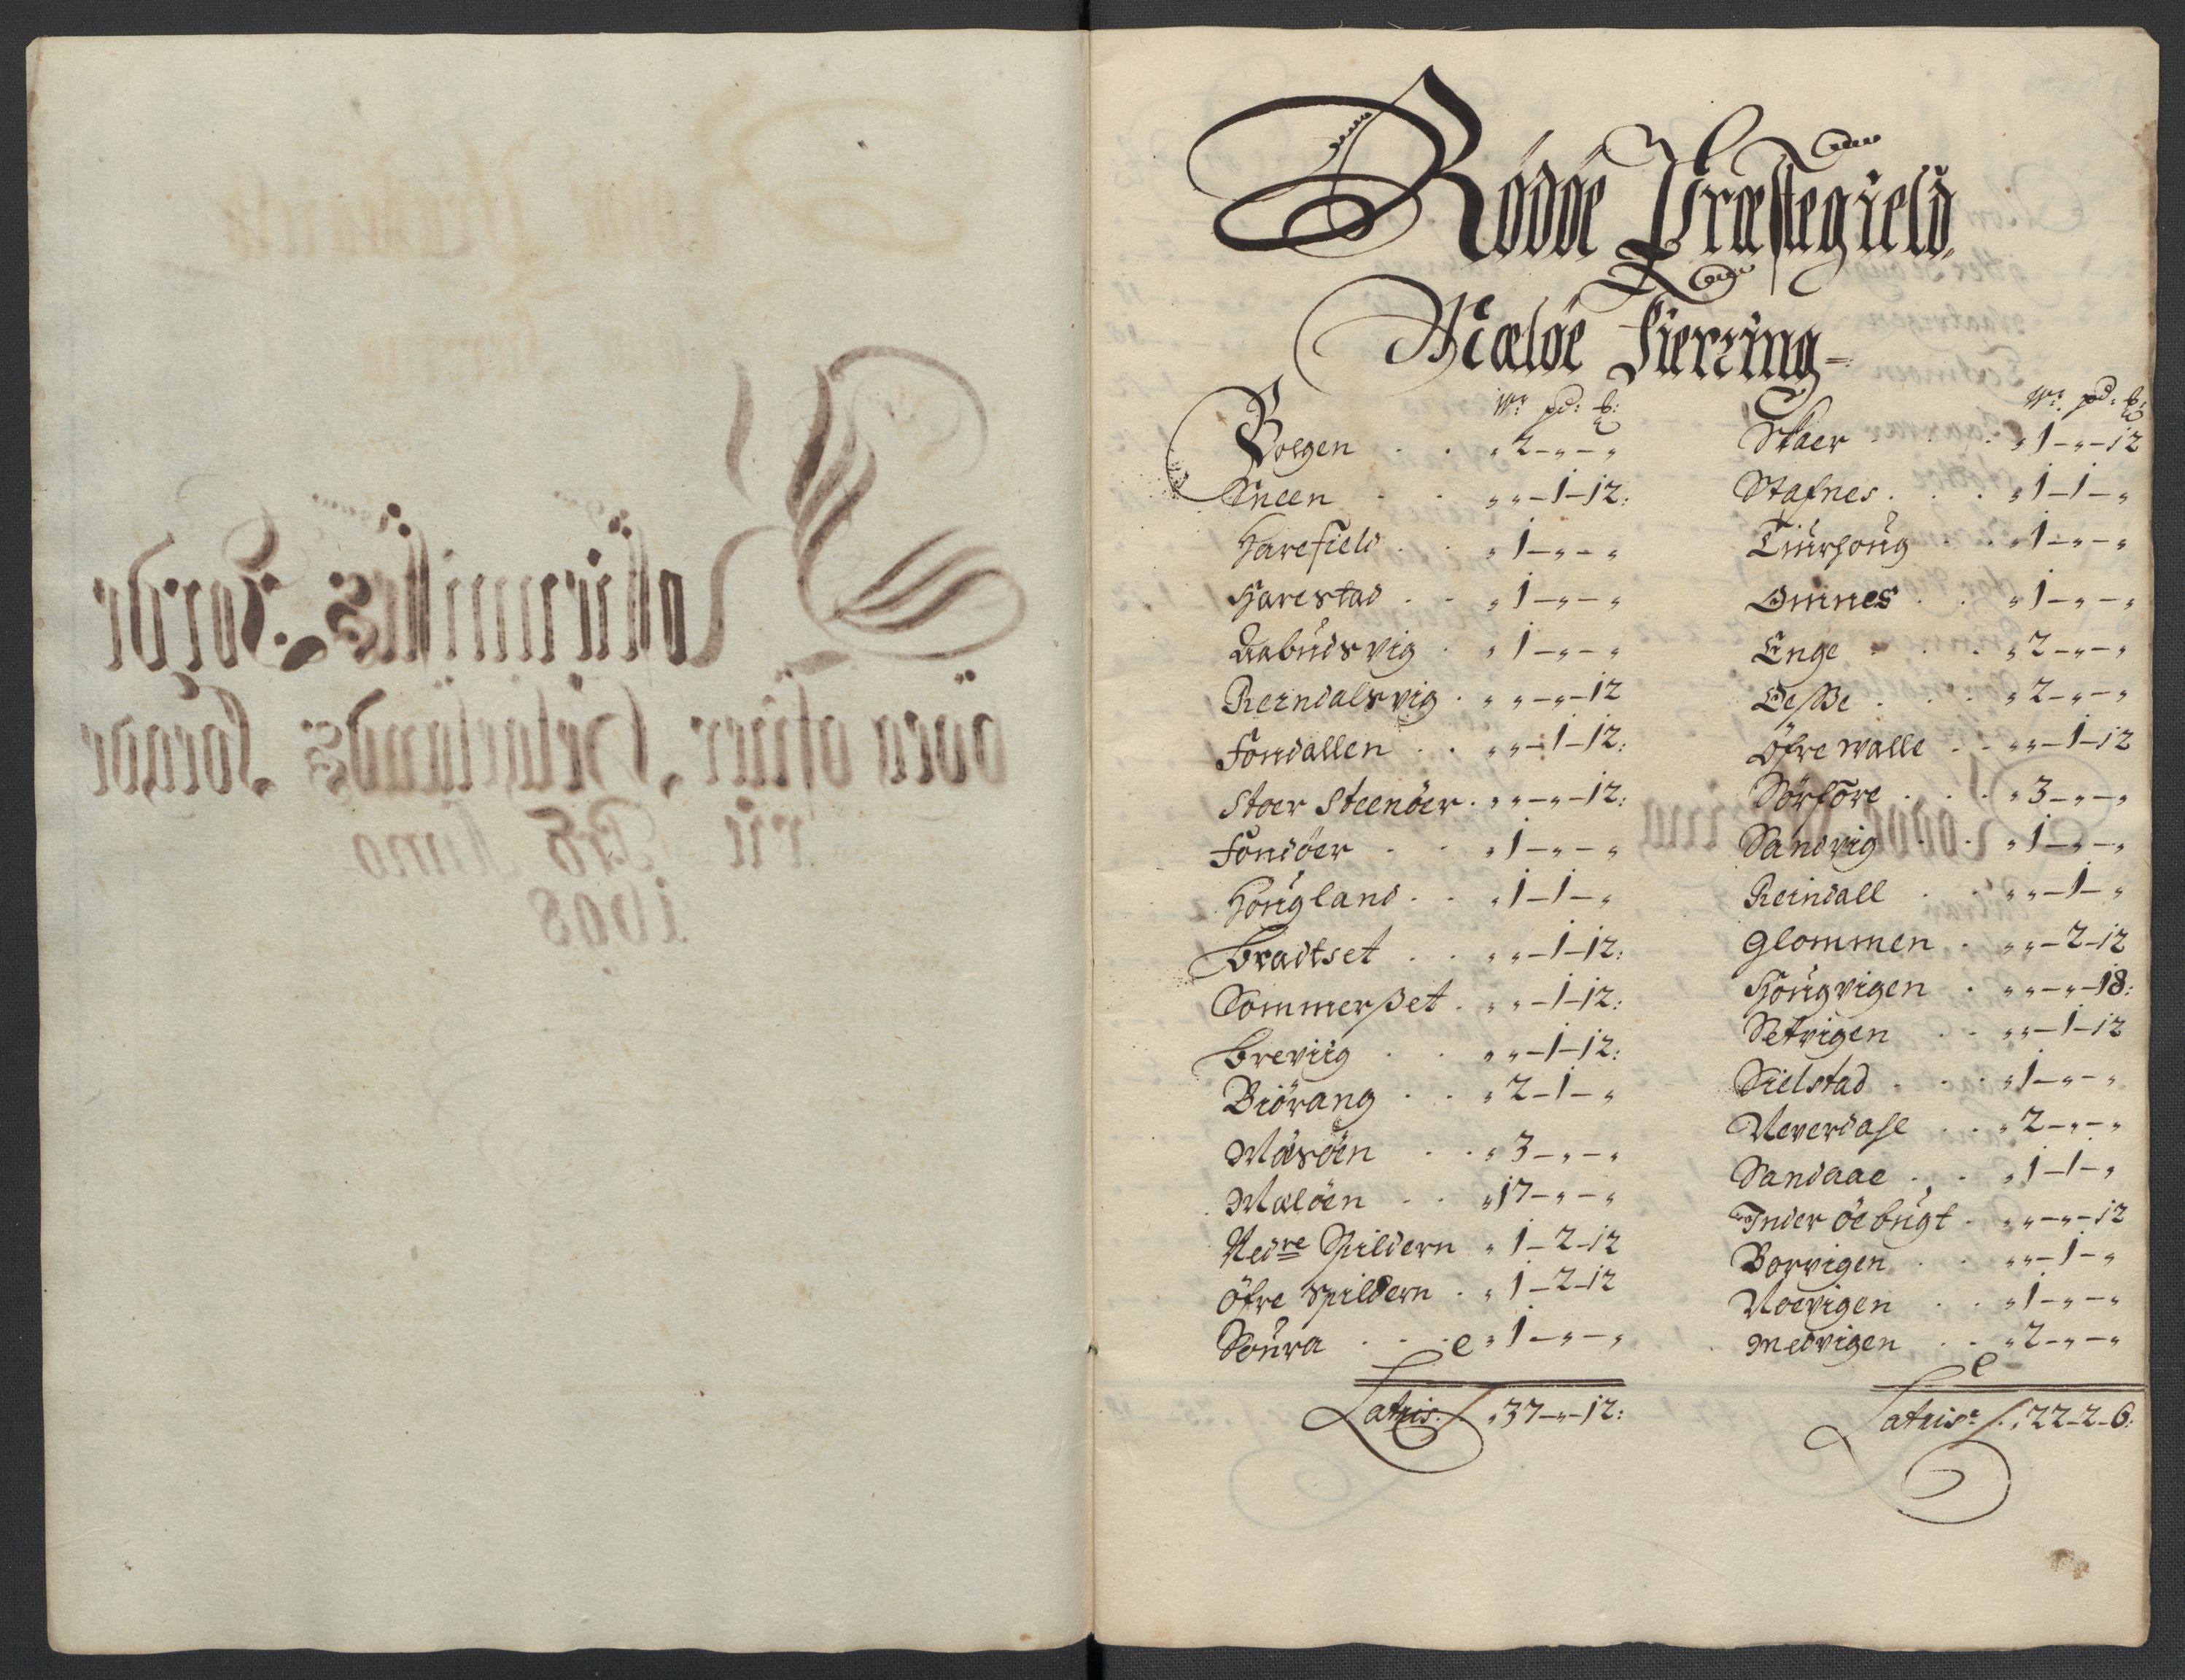 Rödöe Præstegield
Mælöe Fierring
W: pd: ℔:
Bolgen . . „ 2 - „ - „
Sneen . . „ „ - 1 - 12:
Harefield . . „ 1 - „ - „
Harestad . . „ 1 - „ - „
Aabudsvig . „ 1 - „ - „
Reindalsvig . „ „ - „ - 12
Fondallen . . „ „ - 1 - 12:
Stoer Steenöer . „ „ - „ - 12:
Fondöer . . „ 1 - „ - „
Hougland . . „ 1 - 1 - „
Bradtset . . „ „ - 1 - 12:
Sommerset . „ „ - 1 - 12:
Breviig . . „ „ - 1 - 12:
Biörang . . „ 2 - 1 - „
Mæsöen . . „ 3 - „ - „
Mælöen . . „ 17 - „ - „
Nedre Spildern „ 1 - 2 - 12
Öfre Spildern . „ 1 - 2 - 12
Soura . . . „ 1 - „ - „
Latris: „ 37 - „ - 12:
W: pd: ℔:
Skaer . . . „ 1 - „ - 12
Stafnes . . . „ 1 - 1 - „
Tiurhoug . . „ 1 - „ - „
Omnes . . „ 1 - „ - „
Enge . . . „ 2 - „ - „
Öfre Walle . . „ „ - 1 - 12
Sörfore . . . „ 3 - „ - „
Sandvig . . „ 1 - „ - „
Reindall . . „ „ - 1 - „
Glommen . „ „ - 2 - 12
Hougvigen . „ „ - „ - 18:
Setvigen . . „ „ - 1 - 12
Sielstad . . . „ 1 - „ - „
Neverdahl . . „ 2 - „ - „
Sandaae . . „ 1 - 1 - „
Inder öebugt . „ „ - „ - 12
Borvigen . . „ „ - 1 - „
Noevigen . . „ 1 - „ - „
Medvigen . . „ 2 - „ - „
Latris: „ 22 - 2 - 6: